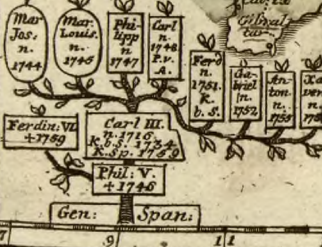 Gibral
tar
Mar.
Jos.
n.
1744
Mar.
Louis.
n.
1745
Phi-
lipp
n
1747
Carl
n.
1748.
P.v.
A.
Ferd
n.
1751.
K.
b. S.
Ga-
briel
n.
1752
An-
ton
n.
1755
Xa
ver
Ferdin: VI
+1759
Carl III.
n. 1716
K. b. S. 1734
K. Sp. 1759
Phil: V.
+1746
Gen: Span:
9 11